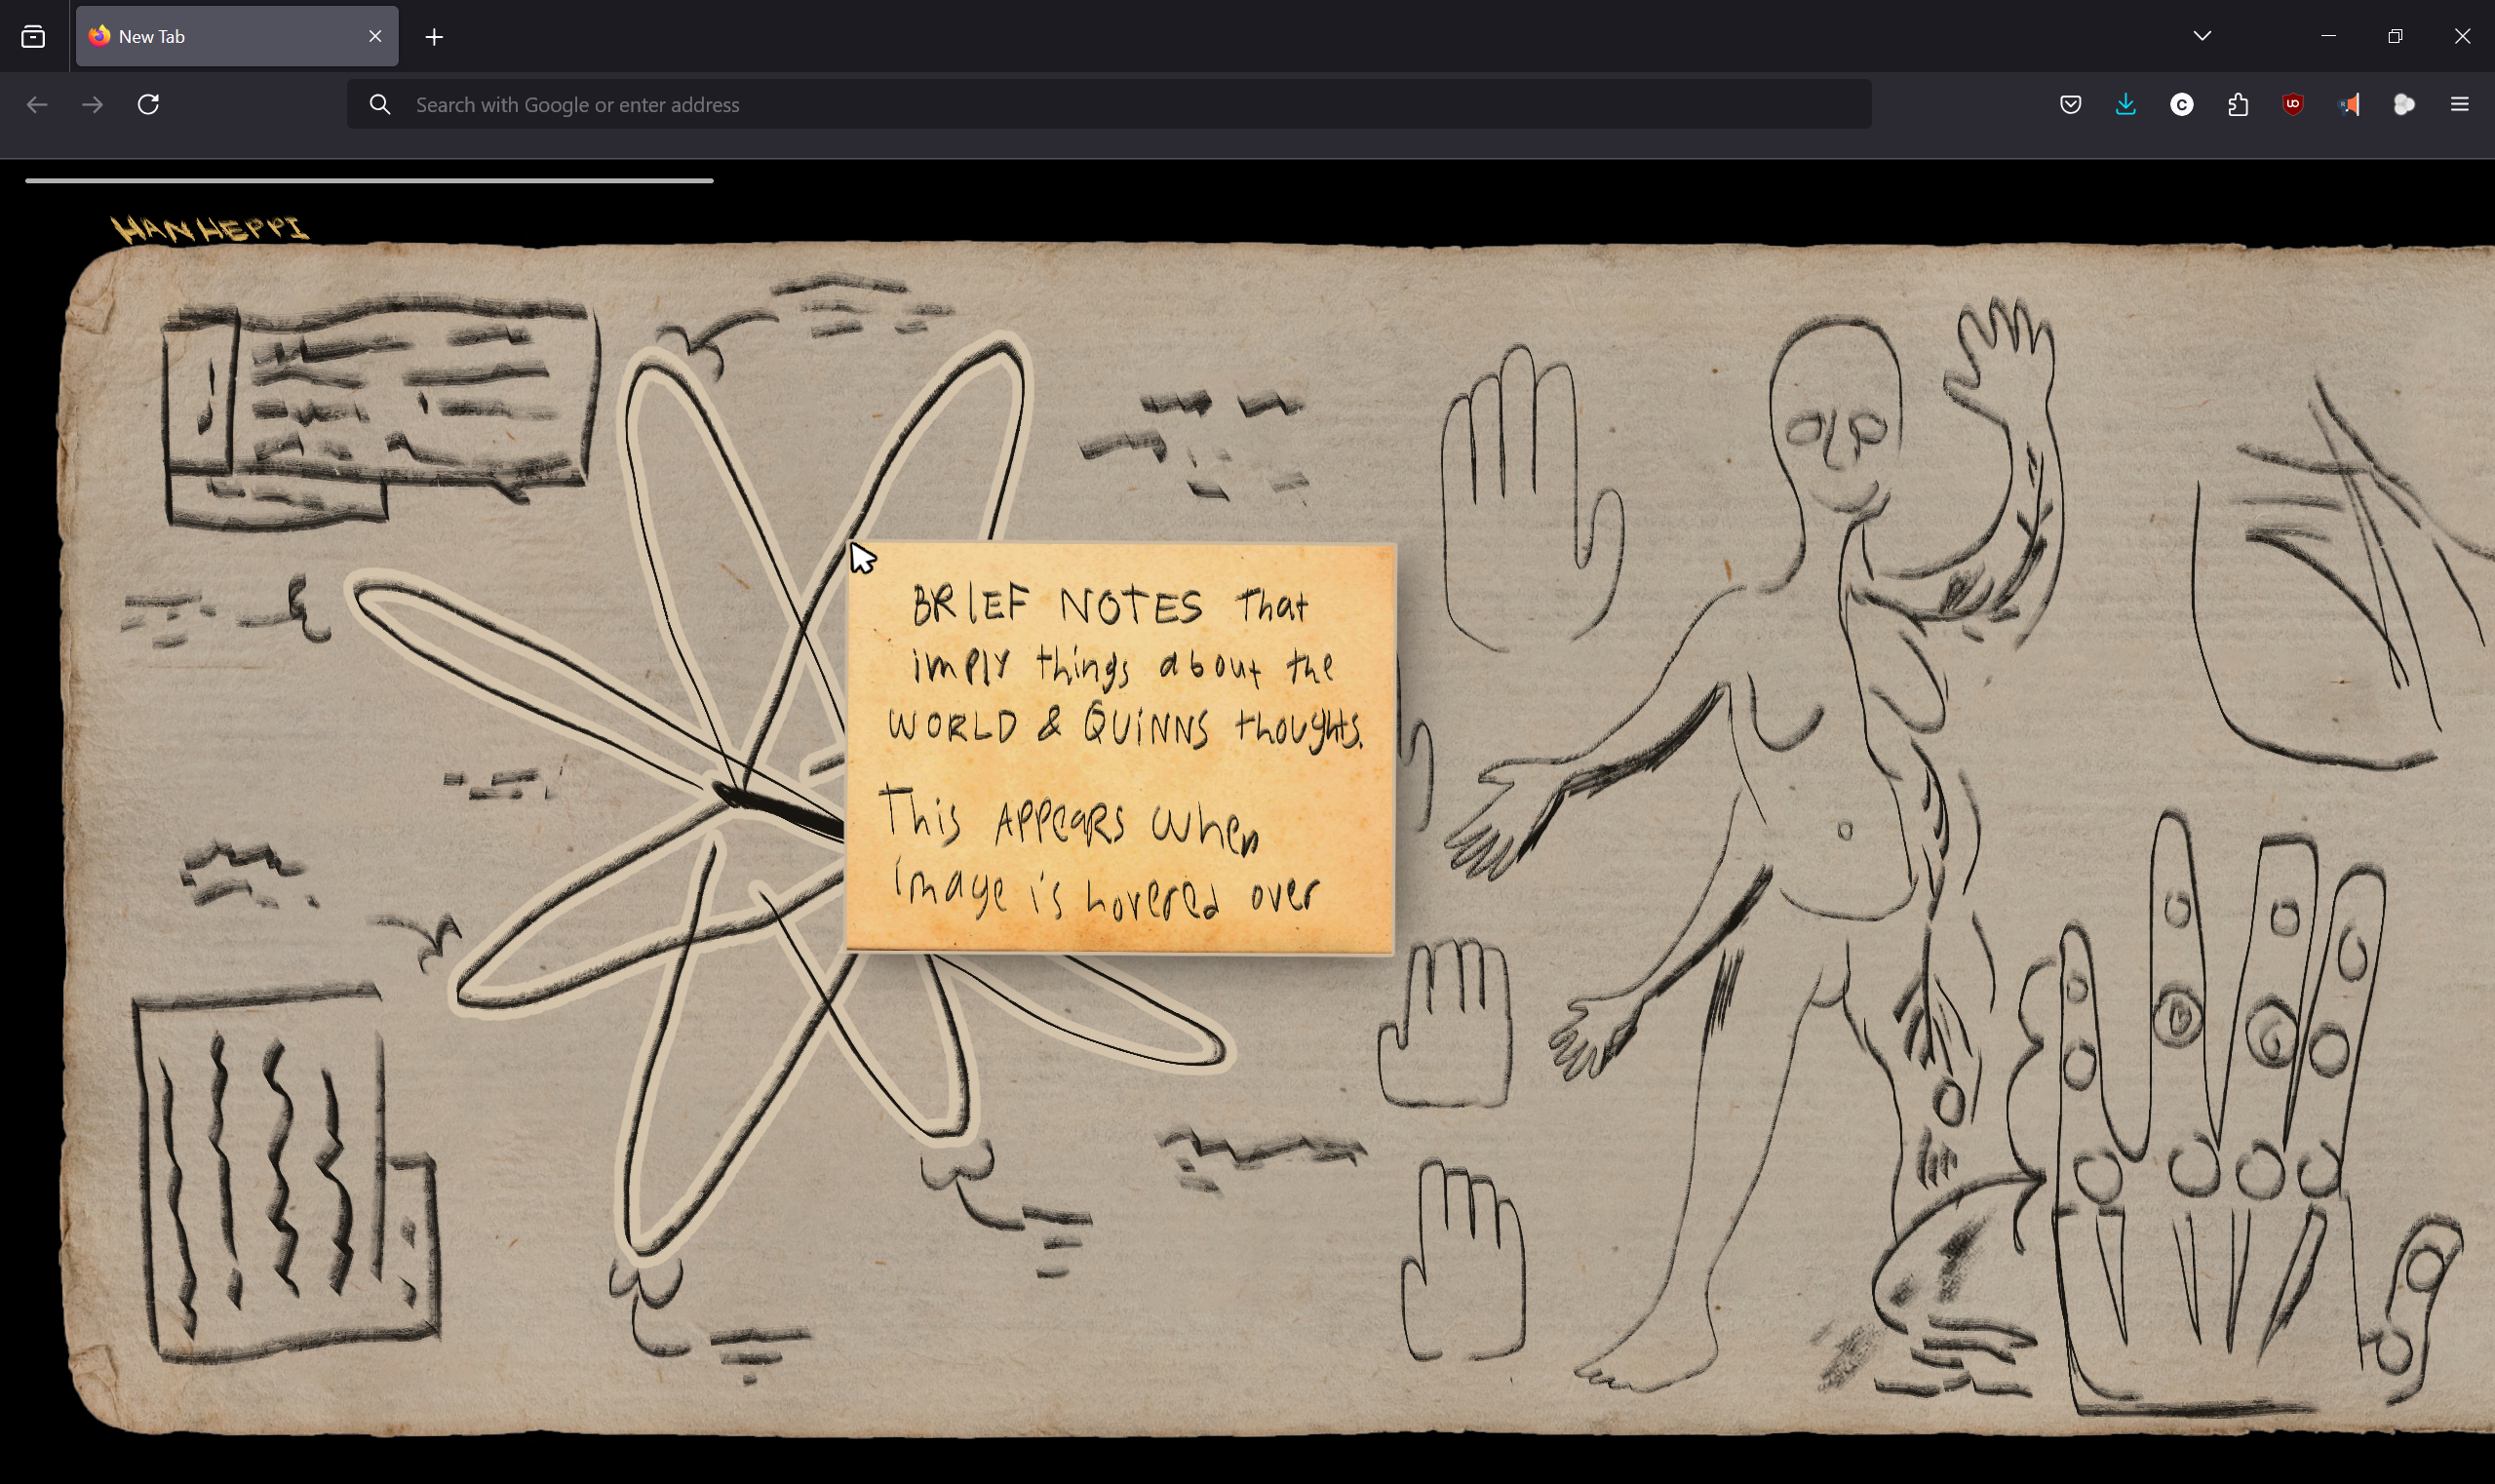 New Tab
Search with Google or enter address
HANHEPPI
BRIEF NOTES That
imply things about the
WORLD & QUINNS thoughts.
This APPeaRS when
image is hovered over